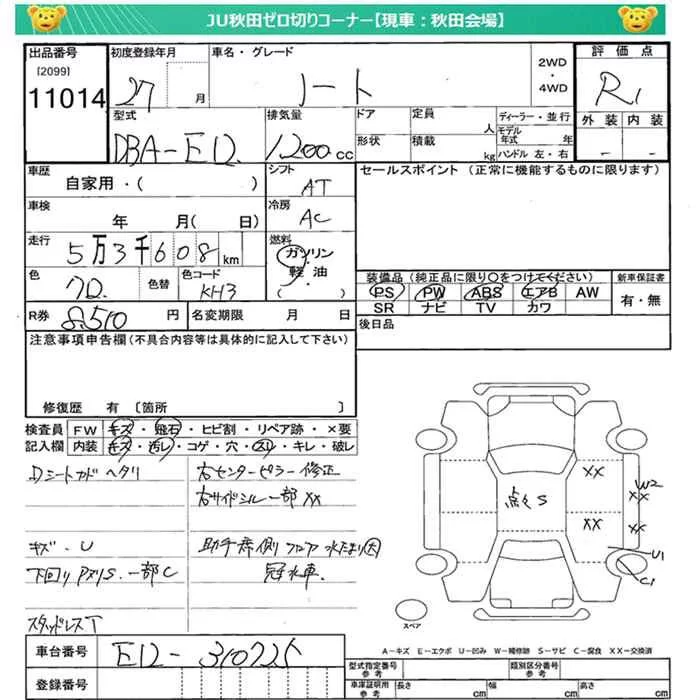 JU秋田ゼロ切りコーナー【現車：秋田会場】
出品番号 初度登録年月 車名・グレード 評価点
[2099]
11014 27 月 ノート 2WD ・ 4WD R1
型式 排気量 ドア 定員 人 ディーラー・並行 外装 内装
DBA-E12 1200cc 形状 積載 kg モデル年式 年 ハンドル 左・右 - -
車歴 シフト セールスポイント（正常に機能するものに限ります）
自家用・（ ） AT
車検 冷房
年 月（ 日） AC
走行 燃料
5万3千608km ガソリン・軽油
（ ・ ）
色 色替 色コード 装備品（純正品に限り○をつけてください） 新車保証書
クロ KH3 PS PW ABS エアB AW 有・無
SR ナビ TV カワ
R券 8510円 名変期限 月 日 後日品
注意事項申告欄（不具合内容等は具体的に記入して下さい）
修復歴 有 〔箇所 〕
検査員 FW キズ・飛石・ヒビ割・リペア跡・×要
記入欄 内装 キズ・汚レ・コゲ・穴・スレ・キレ・破レ
Dシートカド ヘタリ 右センターピラー修正
右サイドシル一部XX
キズ・U 助手席側フロア水たまり因
下回りアオリS.一部C 冠水車.
スタッドレスT
XX W2
点々S XX
XX XX
U1
C1
スペア
A－キズ E－エクボ U－凹み W－補修跡 S－サビ C－腐食 XX－交換済
車台番号 E12-310725
型式指定番号 類別区分番号
参考 参考
登録番号 車庫証明用 参考 長さ cm 幅 cm 高さ cm